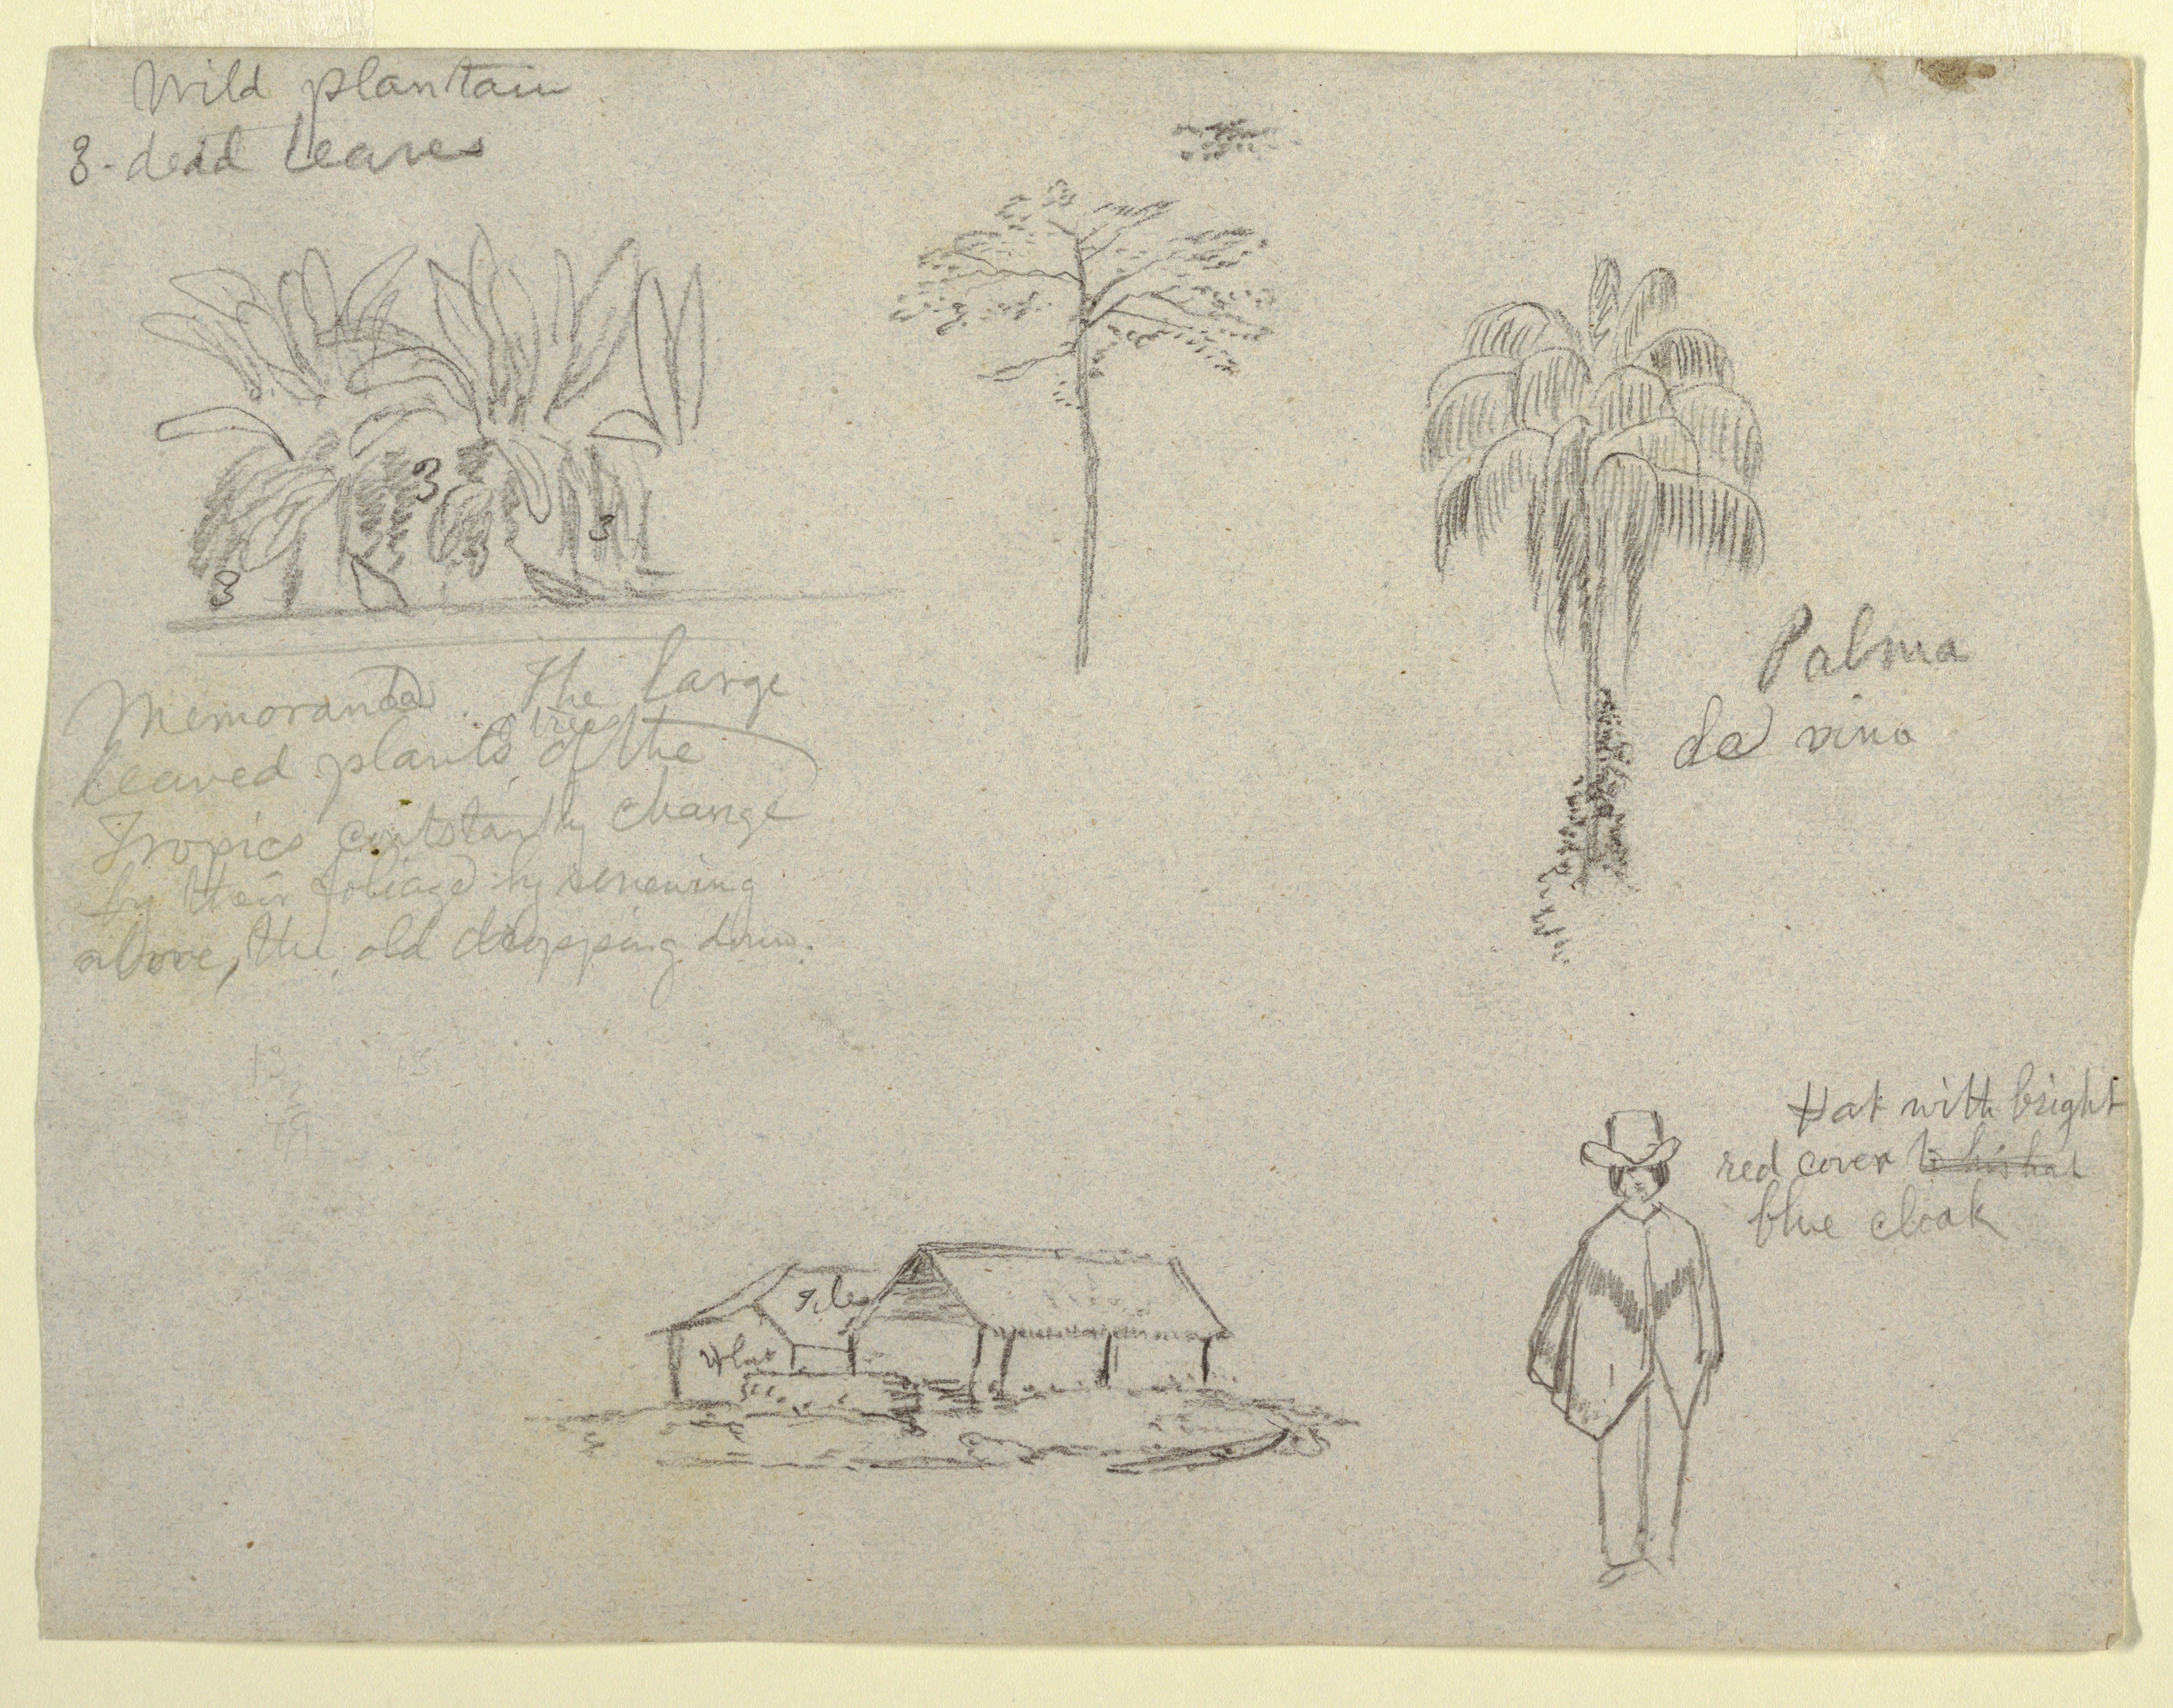 Wild plantain
3 - dead leaves
3
3
3
Memoranda. The large
leaved plants trees of the
Tropics constantly change
by their foliage by renewing
above, the old dropping down.
Palma
de vino
13 13
Hat with bright
red cover to his hat
blue cloak
Tile